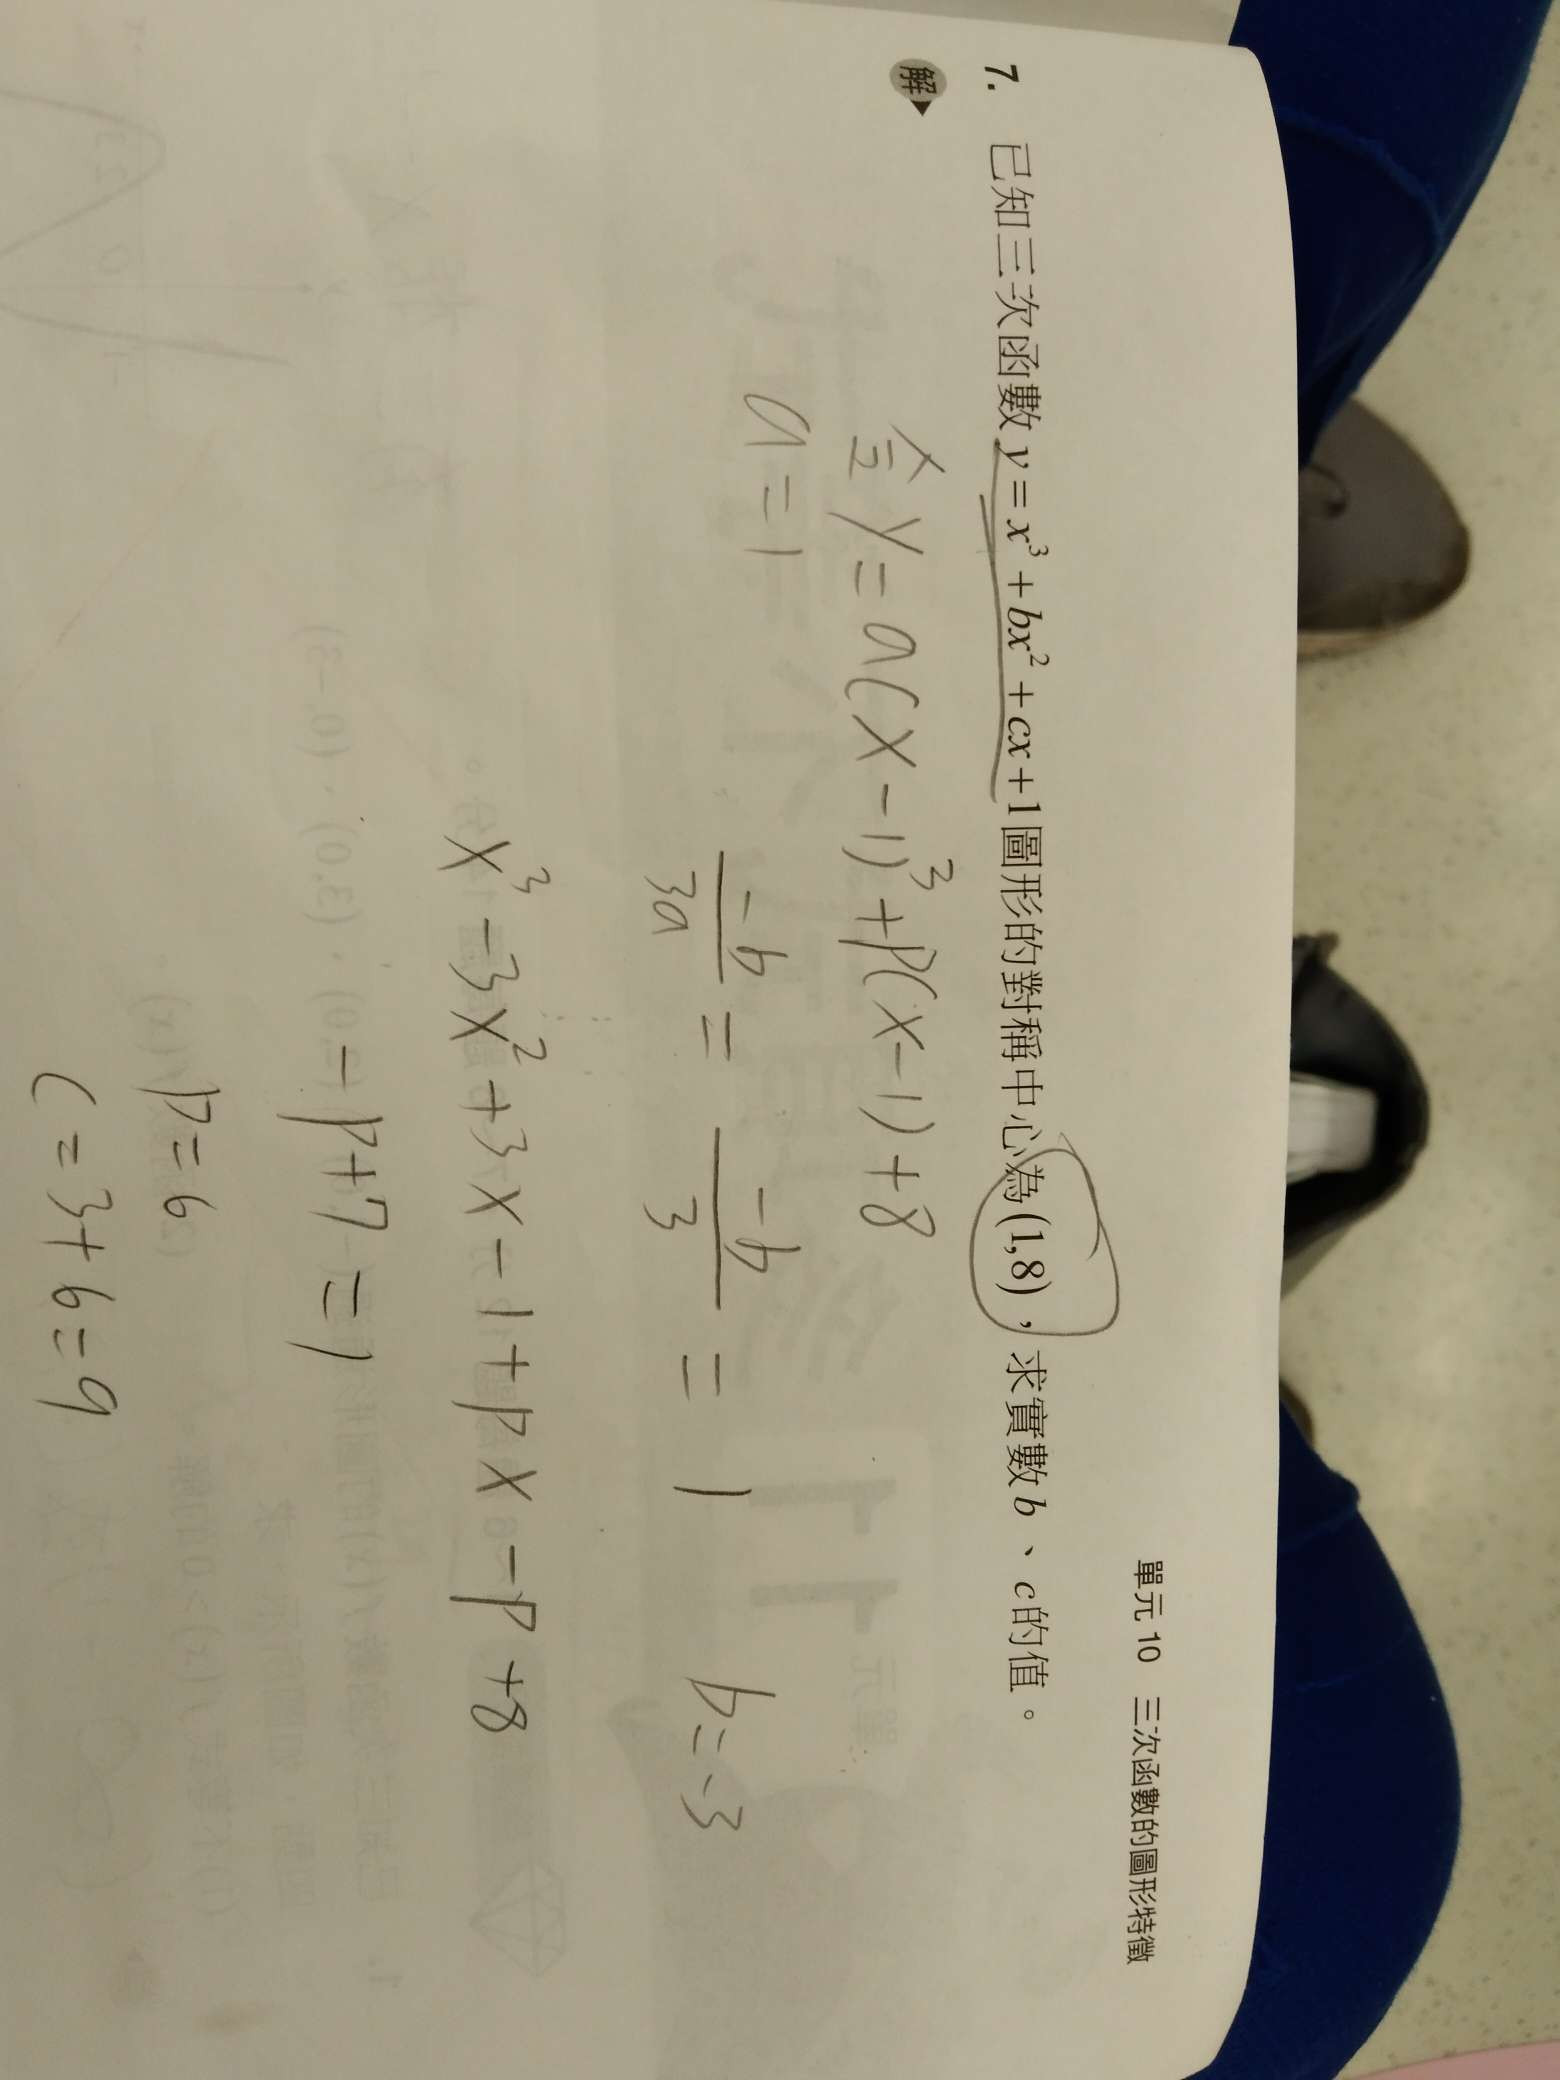 單元 10 三次函數的圖形特徵
7. 已知三次函數 y = x³ + bx² + cx + 1 圖形的對稱中心為 (1,8)，求實數 b、c 的值。
解
令 y = a(x-1)³ + p(x-1) + 8
a = 1
-b/3a = -b/3 = 1 b = -3
x³ - 3x² + 3x - 1 + px - p + 8
-p + 7 = 1
p = 6
c = 3 + 6 = 9